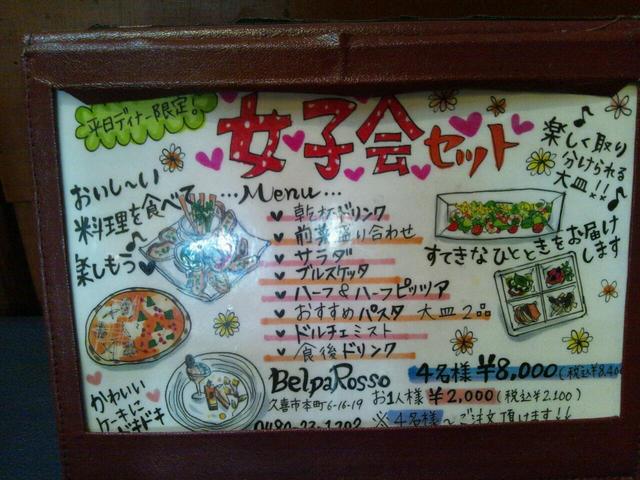 平日ディナー限定。
女子会セット
楽しく取り
分けられる
大皿!!
おいし〜い
料理を食べて
楽しもう
...Menu...
乾杯ドリンク
前菜盛り合わせ
サラダ
ブルスケッタ
ハーフ&ハーフピッツア
おすすめパスタ 大皿2
ドルチェミスト
食後ドリンク
すてきなひとときをお届け
します
かわいい
ケーキに
ドキドキ
BelpaRosso
久喜市本町6-16-19
4名様 ¥8,000(税込¥8,40
お1人様 ¥2,000(税込¥2,100)
※4名様〜ご注文頂けます!!